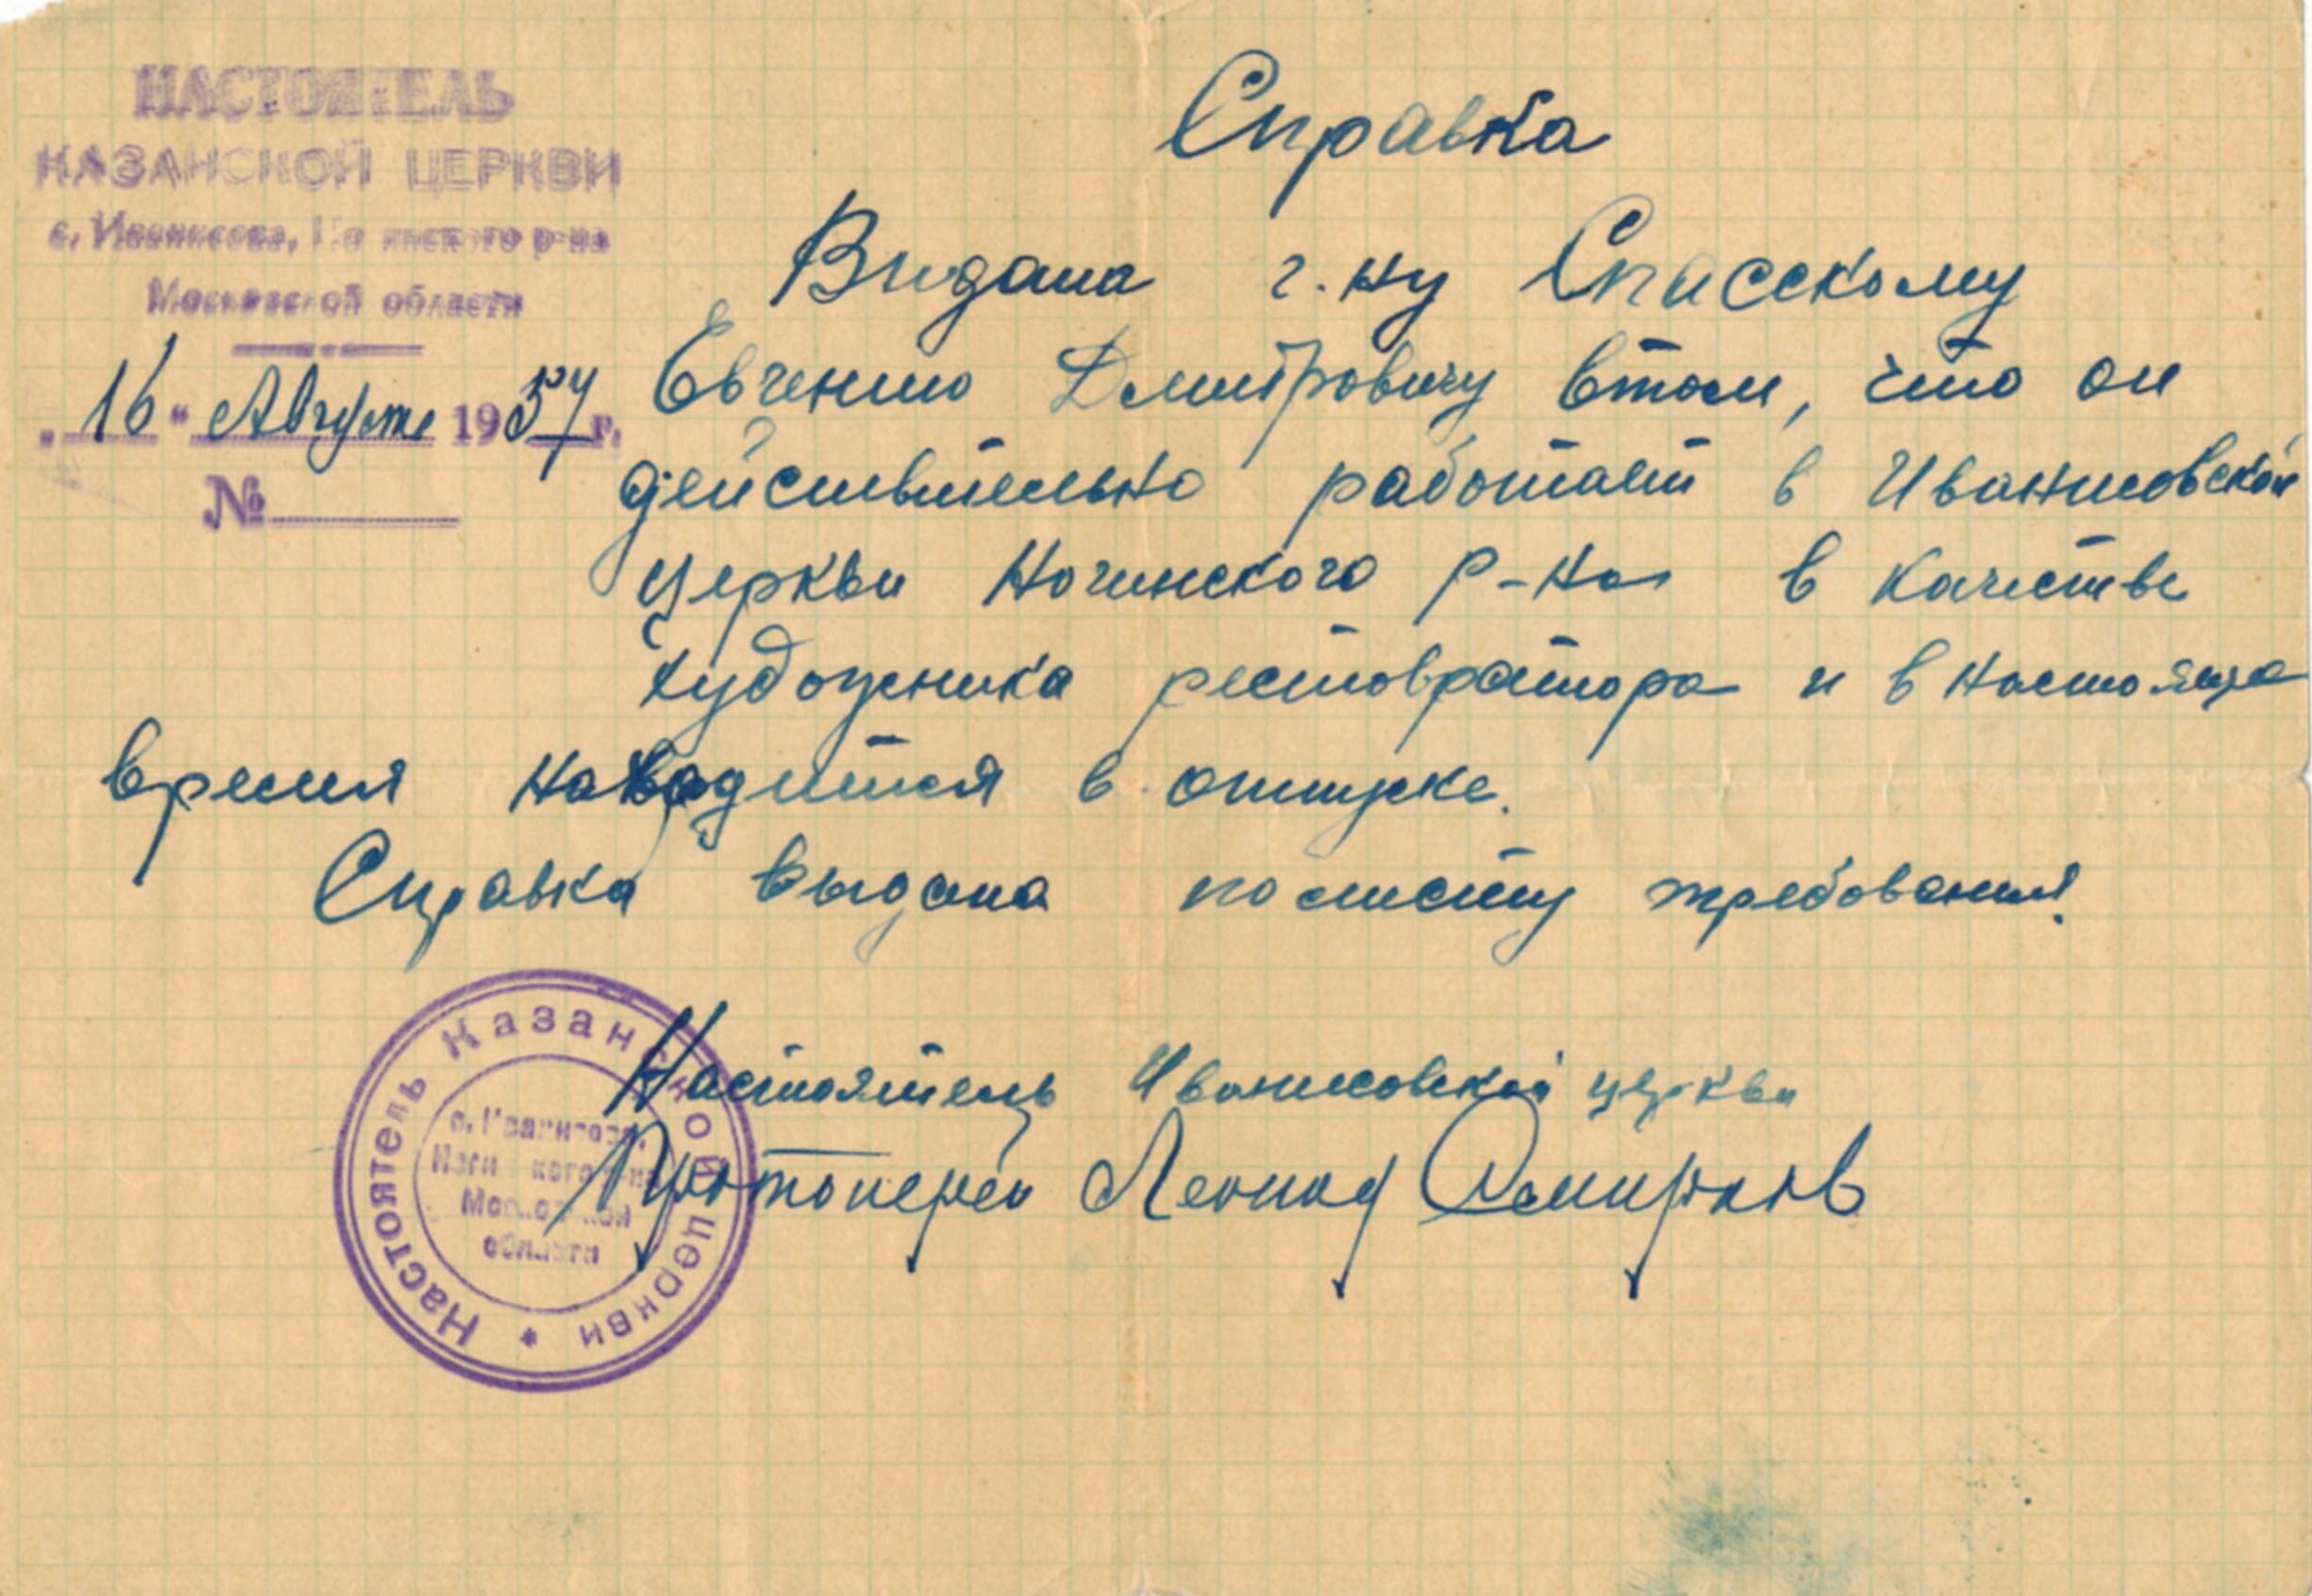 НАСТОЯТЕЛЬ
КАЗАНСКОЙ ЦЕРКВИ
с. Иванисова, р-на
Московской области
"16" Августа 1957 г.
№
Справка
Выдана г.ну Спасскому
Евгению Дмитровичу втом, что он
действительно работает в Иванисовской
церкви Ногинского р-на в качестве
художника реставратора и в настояще
время находится в отпуске.
Справка выдана по месту требования.
Настоятель Иванисовской церкви
Протоиерей Леонид Смирнов
Настоятель Казанской церкви *
с. Иванисово,
Ногинского р-на
Московской
области